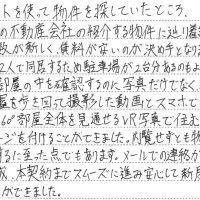 トを使って物件を探していたところ、
の不動産会社の紹介する物件に巡り
数が新しく、賃料が安いのが決め手とな
2人で同居するため駐車場が2台分あるのもよ
部屋の中を確認するのに写真だけでなく
屋を歩き回って撮影した動画とスマホで
60°部屋全体を見渡せるVR写真で住む
ージを付けることができました。内覧せずとも物
るに至った点でもあります。メールでの連絡が
成、本契約までスムーズに進み安心して新居
とができました。